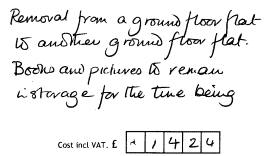 Removal from a ground floor flat
to another ground floor flat.
Books and pictures to remain
in storage for the time being
Cost incl VAT. £ 1 4 2 4